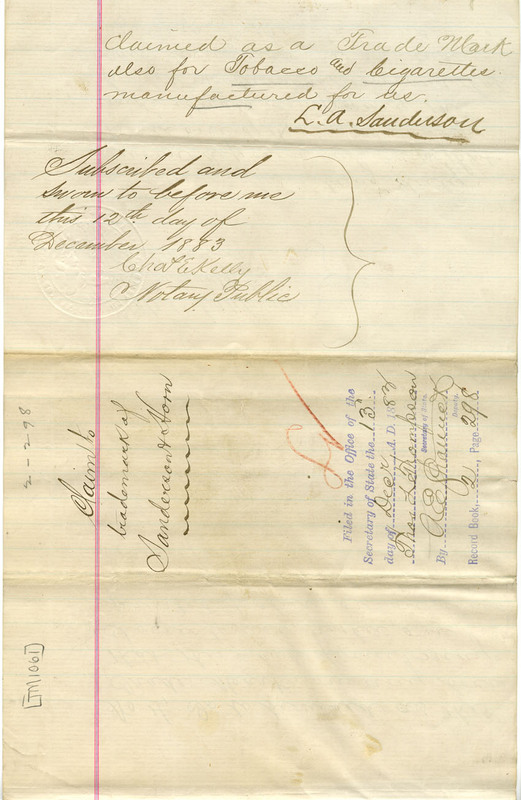 claimed as a Trade Mark
also for Tobacco and Cigarettes
manufactured for us.
L. A. Sanderson
Subscribed and
sworn to before me
this 12th day of
December 1883
Chas E Kelly
Notary Public
2-298
Claim to
trademark of
Sanderson & Horn
Filed in the Office of the
Secretary of State the 13"
day of Decr A.D. 1883
Thos L Thompson
Secretary of State.
By A E
Deputy.
Record Book 2 Page 298
[TM1061]